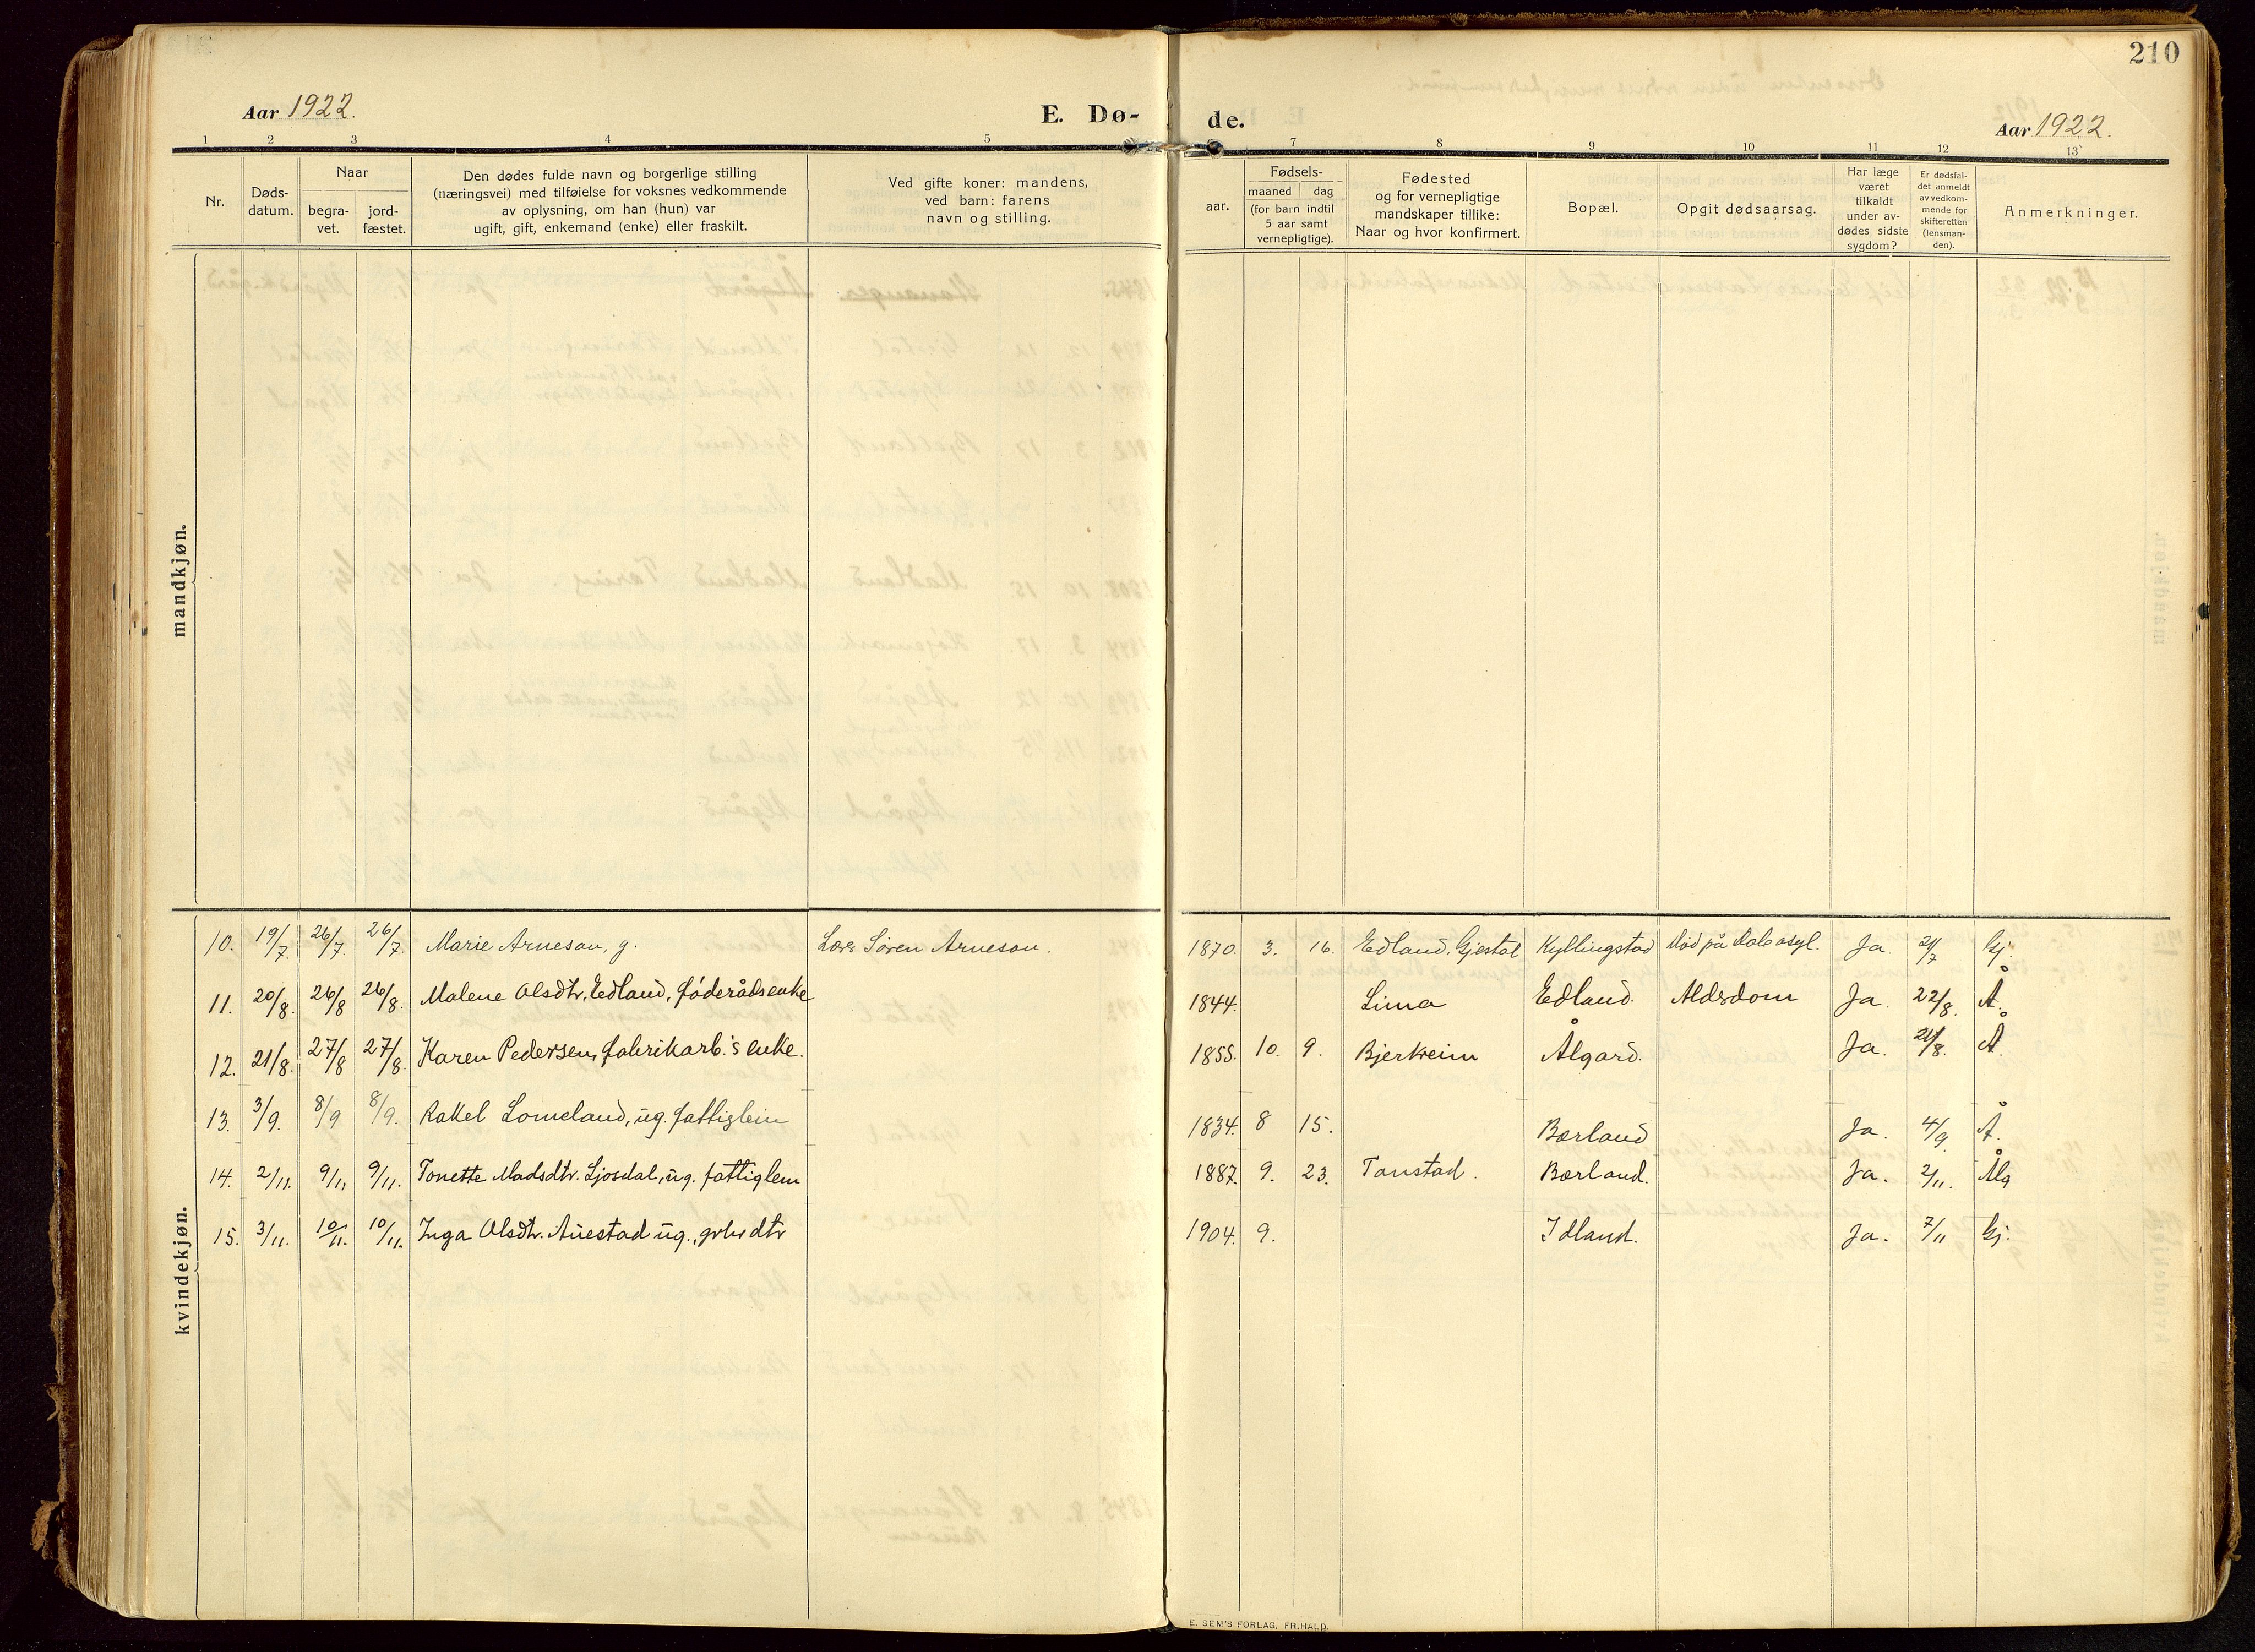 210
Aar 1922.
E. Dø-
de.
Aar 1922.
1 2 3 4 5
7 8 9 10 11 12 13
Nr.
Døds-
datum.
Naar
begra-
vet.
jord-
fæstet.
Den dødes fulde navn og borgerlige stilling
(næringsvei) med tilføielse for voksnes vedkommende
av oplysning, om han (hun) var
ugift, gift, enkemand (enke) eller fraskilt.
Ved gifte koner: mandens,
ved barn: farens
navn og stilling.
aar.
Fødsels-
maaned dag
(for barn indtil
5 aar samt
vernepligtige).
Fødested
og for vernepligtige
mandskaper tillike:
Naar og hvor konfirmert.
Bopæl.
Opgit dødsaarsag.
Har læge
været
tilkaldt
under av-
dødes sidste
sygdom?
Er dødsfal-
det anmeldt
av vedkom-
mende for
skifteretten
(lensman-
den).
Anmerkninger.
mandkjøn.
kvindekjøn.
10. 19/7. 26/7. 26/7. Marie Arneson, g. Lærer Søren Arneson. 1870. 3. 16. Edland, Gjestal Kyllingstad Død på Ja. 21/7 Gj.
11. 20/8. 26/8 26/8. Malene Olsdtr. Edland, føderådsenke 1844. Lima Edland. Alderdom Ja. 22/8. Å.
12. 21/8. 27/8 27/8. Karen Pedersen, fabrikarb.'s enke. 1855. 10. 9. Bjerkreim Ålgård. Ja. 21/8. Å
13. 3/9. 8/9 8/9. Rakel Lomeland, ug. fattiglem 1834. 8 15. Bærland Ja. 4/9. Å.
14. 2/11. 9/11 9/11. Tonette Madsdtr. Ljosdal, ug. fattiglem 1887. 9. 23. Tanstad. Bærland. Ja. 2/11. Ålg
15. 3/11. 10/11. 10/11. Inga Olsdtr. Auestad ug., grbr dtr 1904. 9. Idland. Ja. 7/11 Gj.
E. SEM'S FORLAG, FR.HALD.